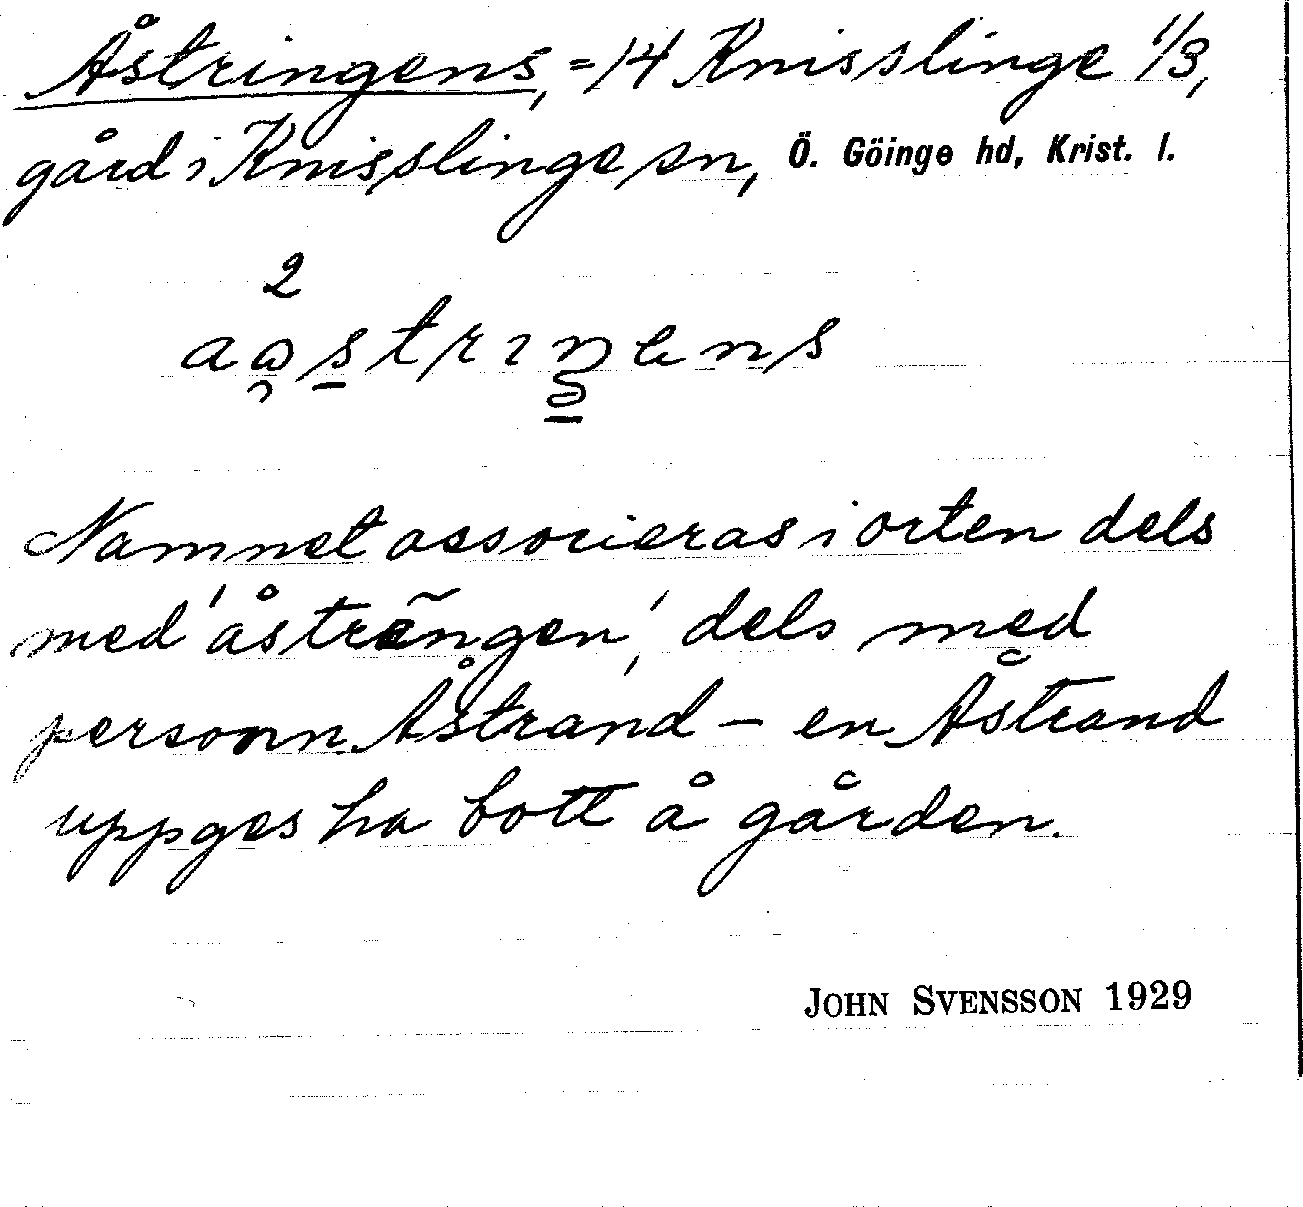 Åstringens, = 14 Knisslinge 1/3,
gård i Knisslinge sn, Ö. Göinge hd, Krist. l.
Namnet associeras i orten dels
med 'åsträngen', dels med
personn. Åstrand – en Åstrand
uppges ha bott å gården.
JOHN SVENSSON 1929